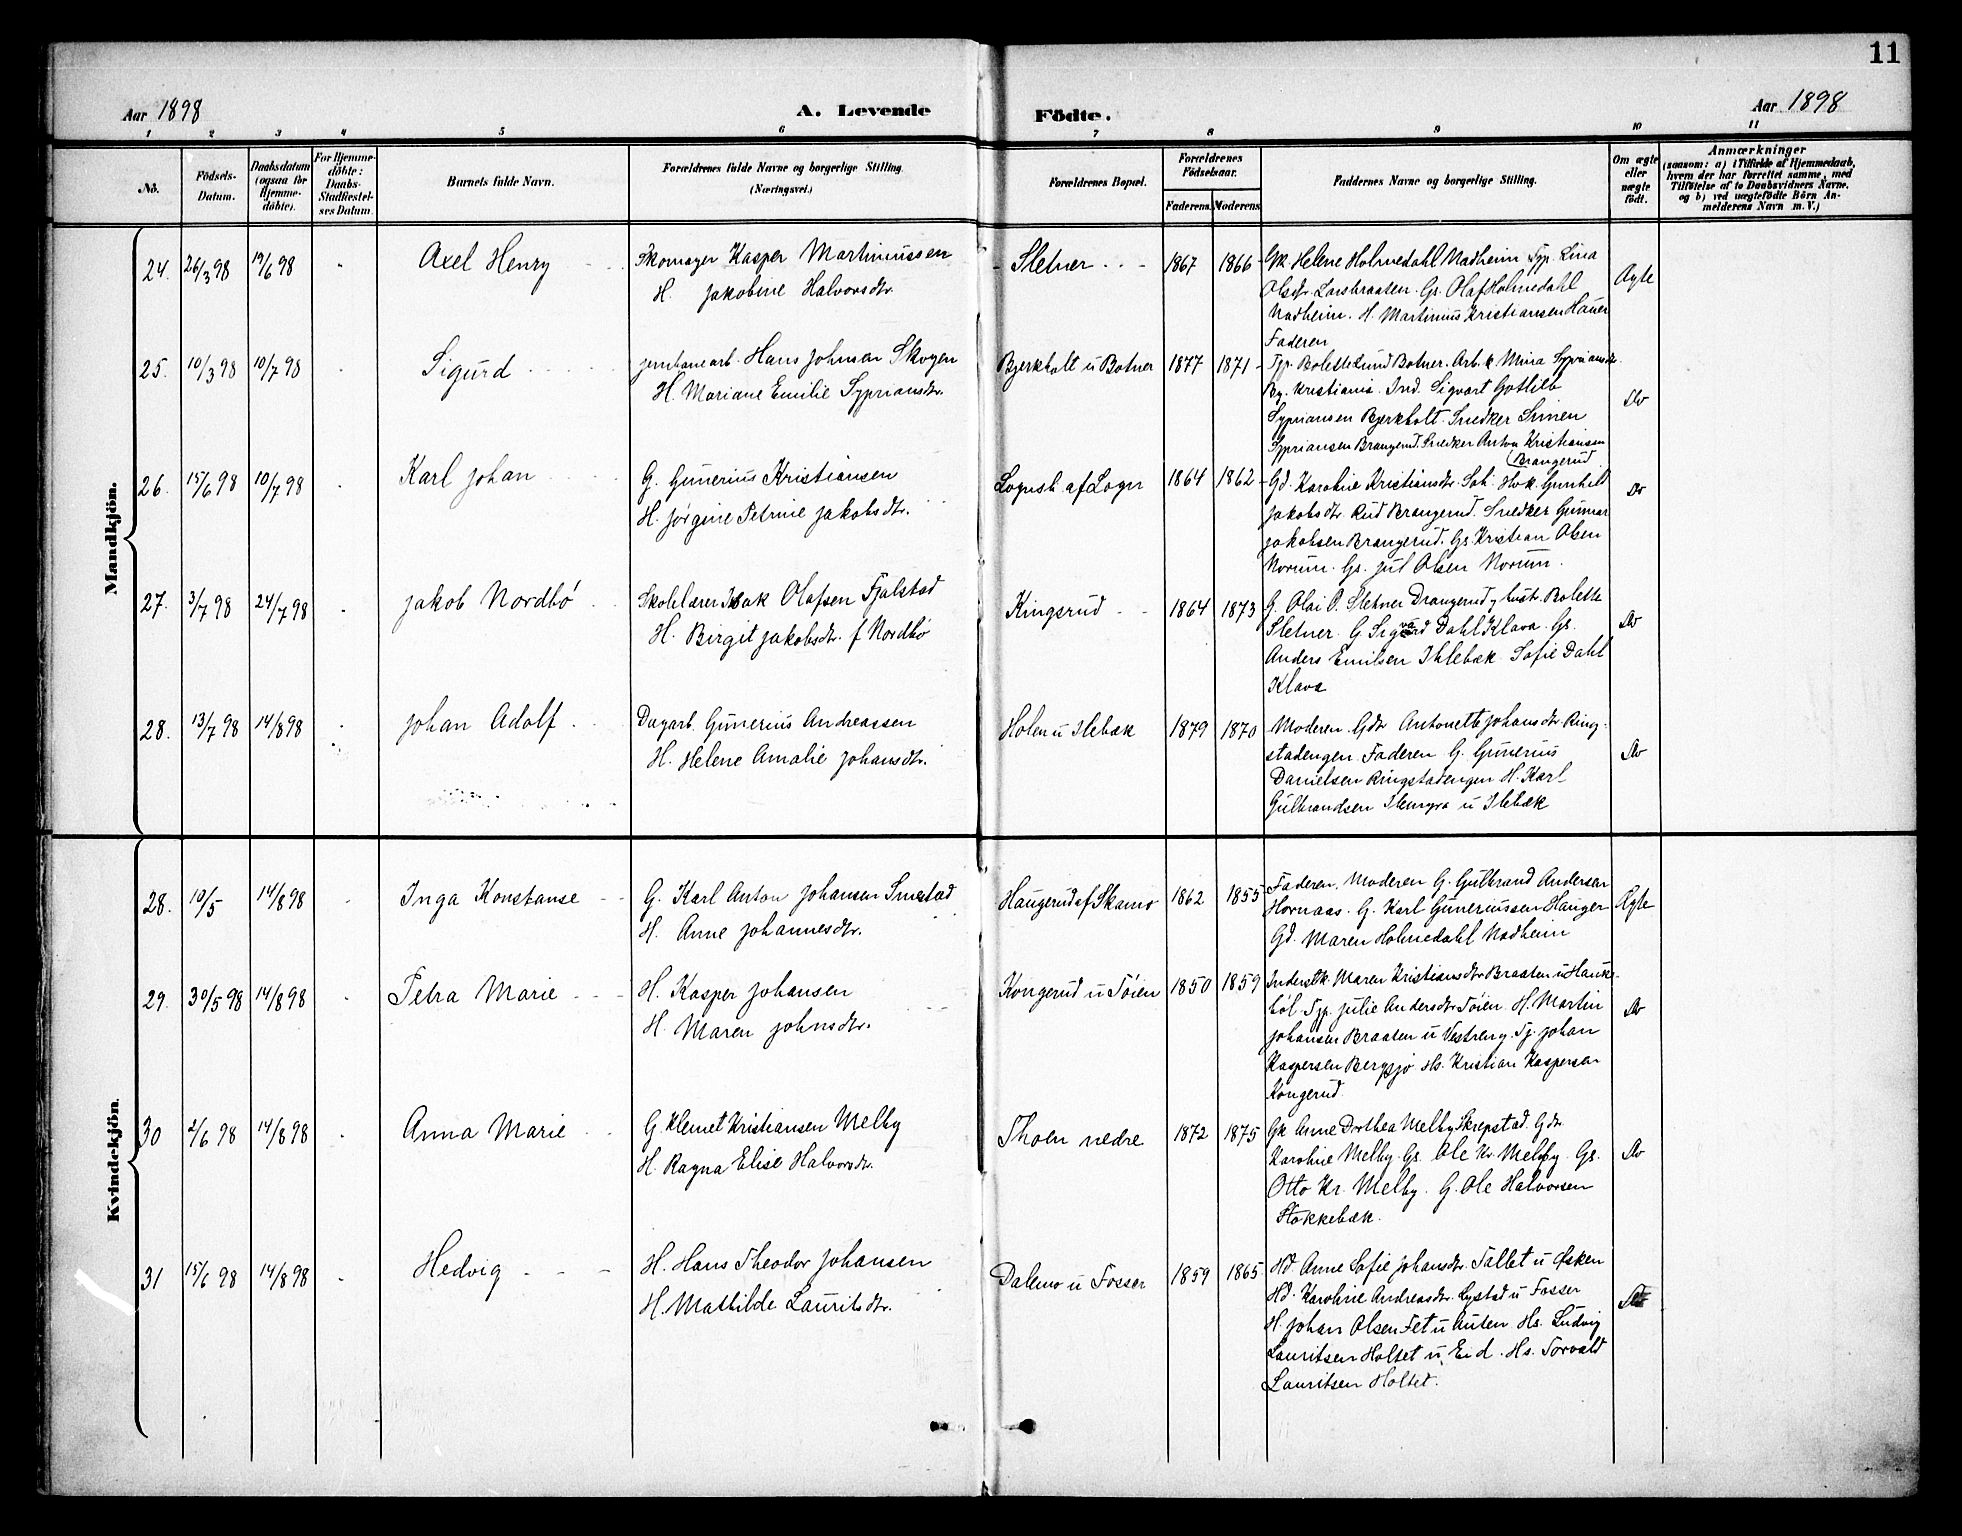 11
Aar 1898
A. Levende
Födte.
Aar 1898
1 2 3 4 5 6 7 8 9 10 11
No.
Födsels-
Datum.
Daabsdatum
(ogsaa for
Hjemme-
döbte).
For Hjemme-
döbte:
Daabs-
Stadfæstel-
ses Datum.
Barnets fulde Navn.
Forældrenes fulde Navne og borgerlige Stilling
(Næringsvei.)
Forældrenes Bopæl.
Forældrenes
Födselsaar.
Faderens. Moderens.
Faddernes Navne og borgerlige Stilling.
Om ægte
eller
uægte
födt.
Anmærkninger
(saasom: a) i Tilfælde af Hjemmedaab,
hvem der har forrettet samme, med
Tilföielse af to Daabsvidners Navne.
og b) ved uægtefödte Börn An-
melderens Navn m. V.)
Mandkjön.
24. 26/3 98 19/6 98 Axel Henry
Skomager Kasper Martiniussen
H. Jakobine Halvorsdtr.
Sletner 1867 1866
Gk. Helene Holmedahl Nadheim Typ. Lina
Olsdtr. Larsbraaten. Gs. Olaf Holmedahl
Nadheim. H. Martinius Kristiansen Hauer
Faderen
Ægte
25. 10/3 98 10/7 98 Sigurd
Jernbanearb. Hans Johnsen Skogen
H. Mariane Emilie Sypriansdtr.
Bjerkholt u Botner 1877 1871
Tjp. Bolette Lund Botner. Arb.k. Mina Sypriansdtr
By. Kristiania. Ind. Sigvart Gotlieb
Sypriansen Bjerkholt. Snedker Simen
Sypriansen Brangerud. Snedker Anton Kristiansen
(Brangerud
Do
26. 15/6 98 10/7 98 Karl Johan
G. Gunerius Kristiansen
H. Jørgine Petrine Jakobsdtr.
Lognsh. af Logn 1864 1862
Gd. Karoline Kristiansdtr. Hok. Gunhild
Jakobsdtr. Rud Brangerud. Snedker Gunnar
Jakobsen Brangerud. Gs. Kristian Olsen
Norum. Gs. Jul Olsen Norum.
Do
27. 3/7 98 24/7 98 Jakob Nordbø
Skolelærer Isak Olafsen Fjalstad
H. Birgit Jakobsdtr. f Nordbø
Kingsrud 1864 1873
G. Olai O. Sletner Drangerud, hustr. Bolette
Sletner. G Sigvard Dahl Klava. Gs.
Anders Emilsen Ihlebæk. Sofie Dahl
Klava
Do
28. 13/7 98 14/8 98 Johan Adolf
Dagarb. Gunerius Andreassen
H. Helene Amalie Johansdtr.
Holen u Ilebæk 1879 1870
Moderen. Gdr. Antonette Johansdtr. Ring-
stadengen. Faderen. G. Gunerius
Danielsen Ringstadengen H. Karl
Gulbrandsen Stenmyra u Ilebæk
Do
Kvindekjön.
28. 10/5 14/8 98 Inga Konstanse
G. Karl Anton Johansen Smestad
H. Anne Johannesdtr.
Haugerud af Skamo 1862 1855
Faderen, Moderen G. Gulbrand Andersen
Hornaas. G. Karl Guneriussen Hauger
Gd. Maren Holmedahl Nadheim
Ægte
29. 30/5 98 14/8 98 Petra Marie
H. Kasper Johansen
H. Maren Johnsdtr.
Kongerud u Töien 1850 1859
Inderstk. Maren Kristiansdtr Braaten u Hauke-
böl. Typ. Julie Andersdtr Töien. H. Martin
Johansen Braaten u Vestreng. Tj. Johan
Kaspersen Bergsjø Hs. Kristian Kaspersen
Kongerud.
Do
30 2/6 98 14/8 98 Anna Marie
G. Klemet Kristiansen Melby
H. Ragna Elise Halvorsdtr.
Thoen nedre 1872 1875
Gk Anne Dorthea Melby Skrepstad. Gdr.
Karoline Melby. Gs. Ole Kr. Melby. Gs.
Otto Kr. Melby. G. Ole Halvorsen
Stokkebæk.
Do
31 15/6 98 14/8 98 Hedvig
H. Hans Theodor Johansen
H. Mathilde Lauritsdtr.
Dalemo u Fosser 1859 1865
Hd. Anne Sofie Johansdtr. Tallet u Æsken
Hd. Karoline Andreasdtr. Lystad u Fosser
H. Johan Olsen Fet u Auten Hs. Ludvig
Lauritsen Holtet u Eid. Hs. Torvald
Lauritsen Holtet.
Do